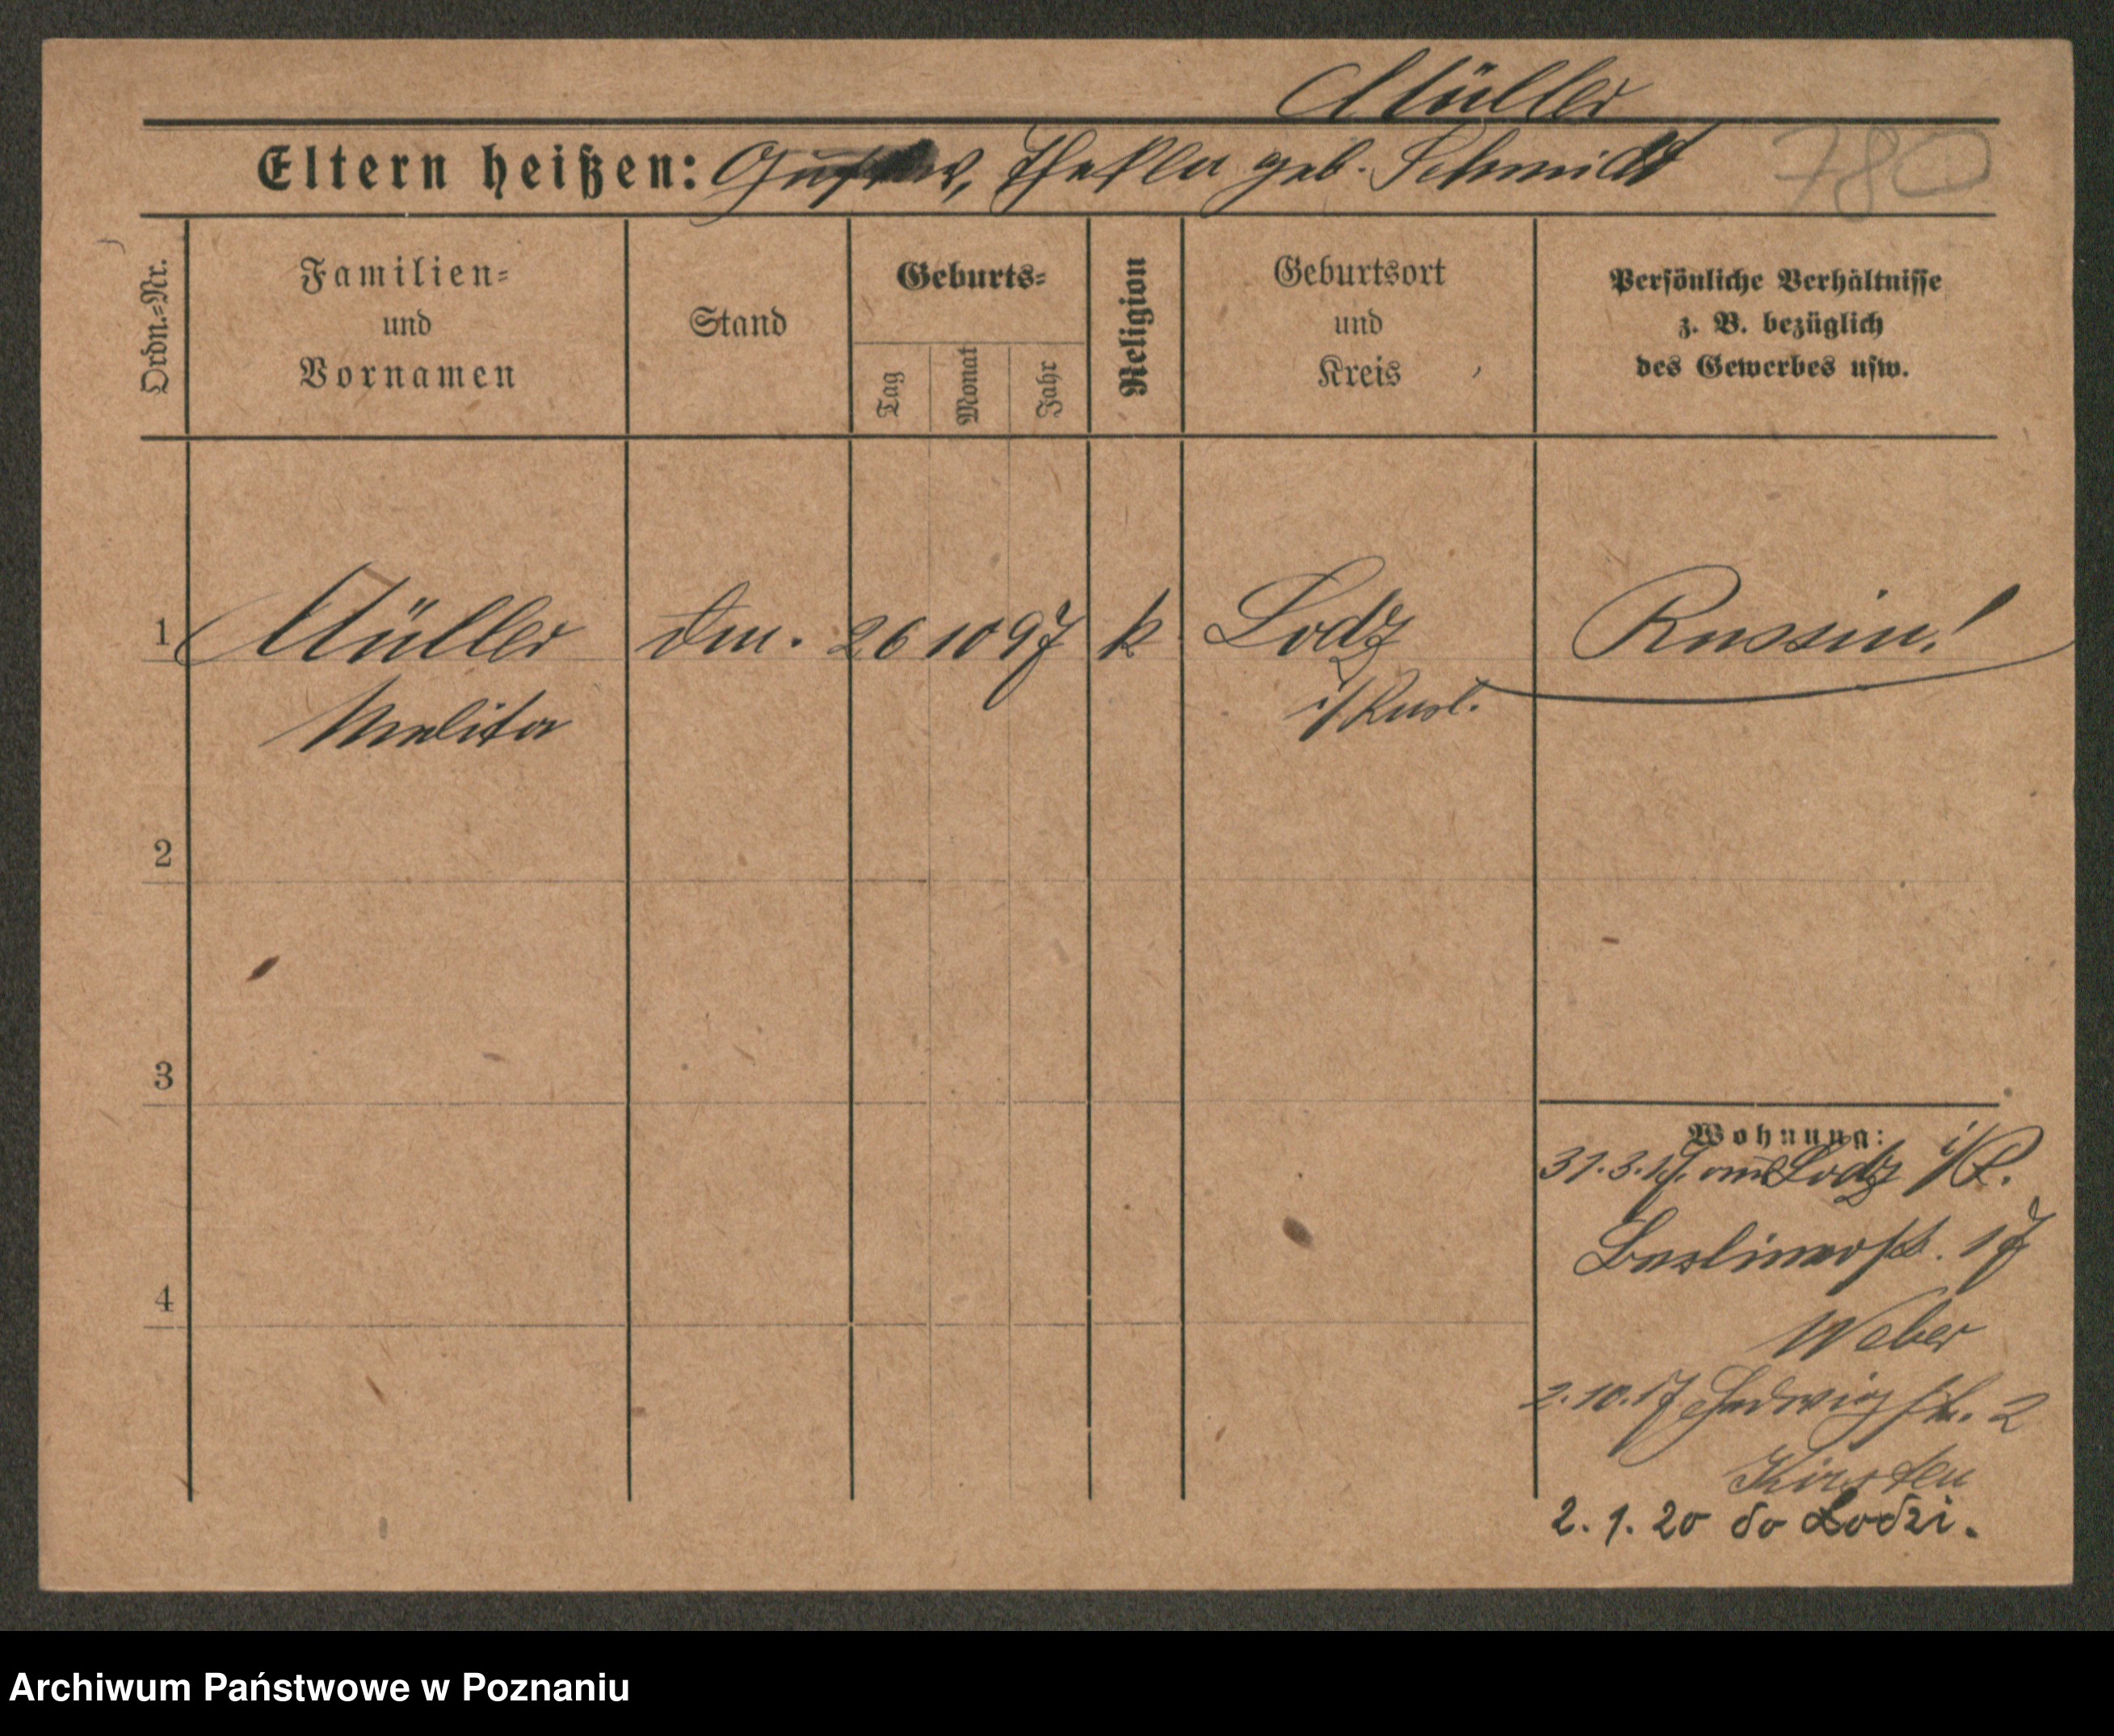 Müller
Eltern heißen: Gustav, Thekla geb. Schmidt 780
Ordn.-Nr.
Familien-
und
Vornamen
Stand
Geburts-
Tag
Monat
Jahr
Religion
Geburtsort
und
Kreis
Persönliche Verhältnisse
z. B. bezüglich
des Gewerbes usw.
1 Müller 26 10 97 k Lodz Russin!
Melita i/Rusl.
2
3
Wohnung:
31.3.17. aus Lodz i/R.
Berlinerstr. 17
4
Weber
2.10.17 Hedwigstr. 2
Kirsten
2. 1. 20 do Lodzi.
Archiwum Państwowe w Poznaniu